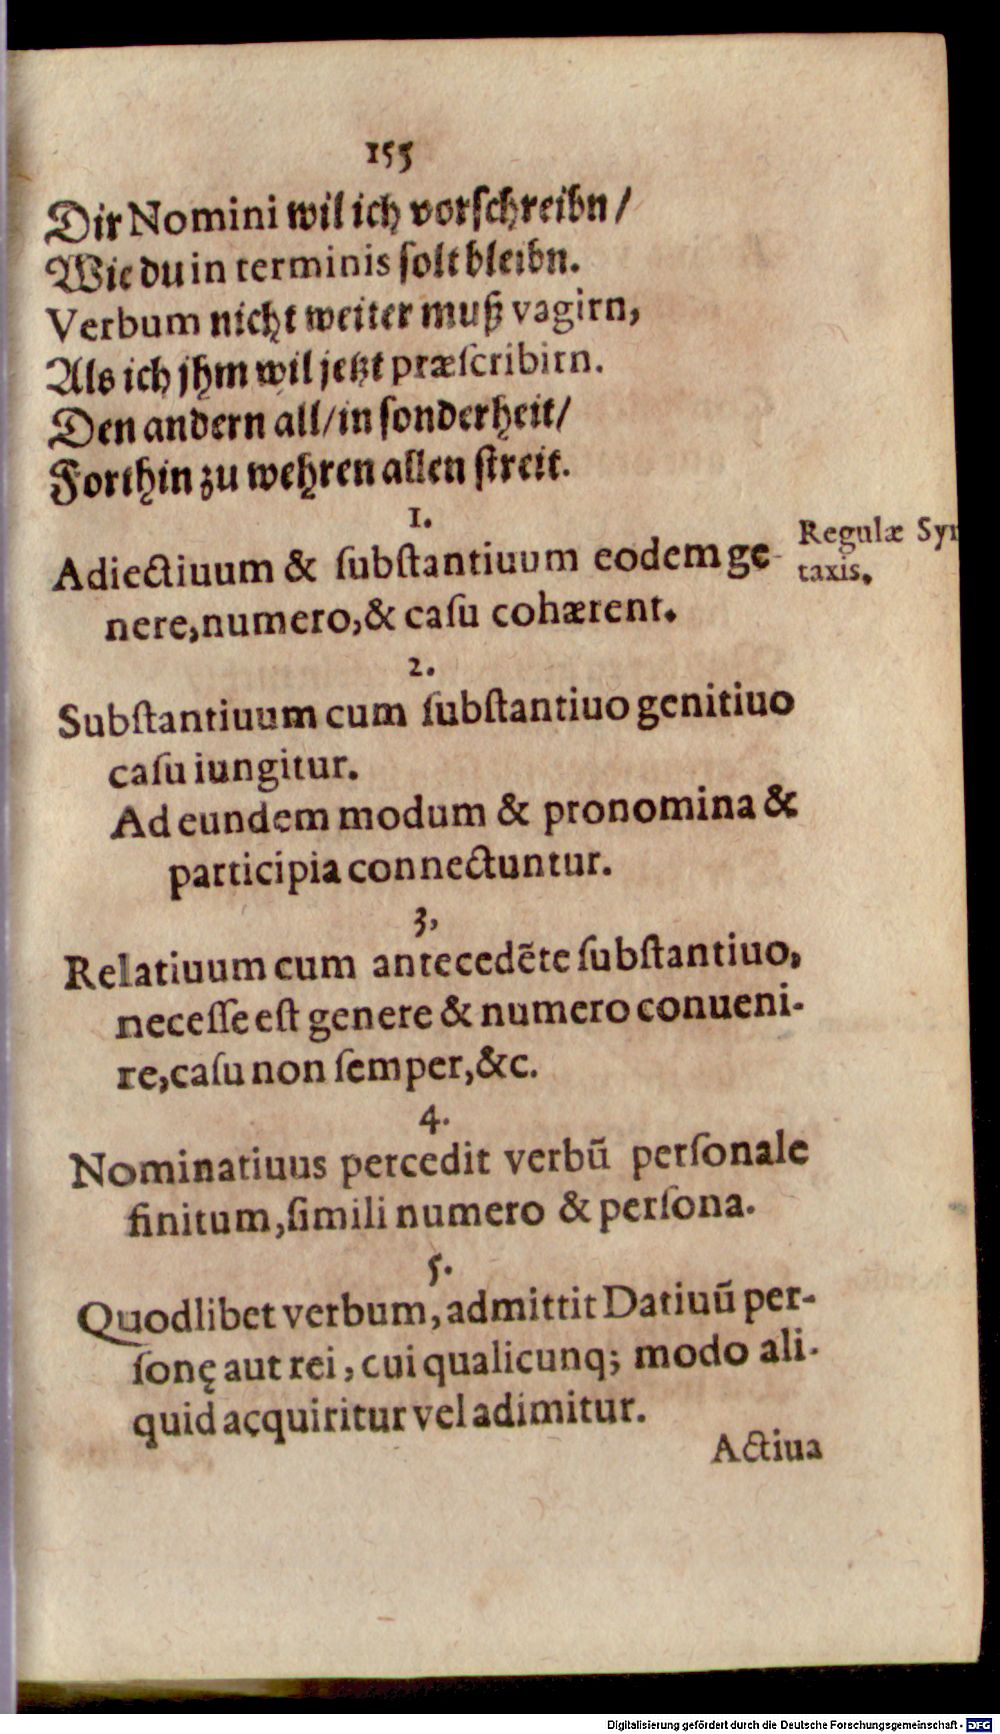 155
Dir Nomini wil ich vorſchreibn /
Wie du in terminis ſolt bleibn.
Verbum nicht weiter muß vagirn,
Als ich jhm wil jetzt præſcribirn.
Den andern all / in ſonderheit /
Forthin zu wehren allen ſtreit.
1.
Adiectiuum & ſubſtantiuum eodem ge-
nere, numero, & caſu cohærent.
Regulæ Syn
taxis.
2.
Subſtantiuum cum ſubſtantiuo genitiuo
caſu iungitur.
Ad eundem modum & pronomina &
participia connectuntur.
3,
Relatiuum cum antecedẽte ſubſtantiuo,
neceſſe eſt genere & numero conueni-
re, caſu non ſemper, &c.
4.
Nominatiuus percedit verbũ perſonale
finitum, ſimili numero & perſona.
5.
Quodlibet verbum, admittit Datiuũ per-
ſonę aut rei, cui qualicunq; modo ali-
quid acquiritur vel adimitur.
Actiua
Digitalisierung gefördert durch die Deutsche Forschungsgemeinschaft - DFG